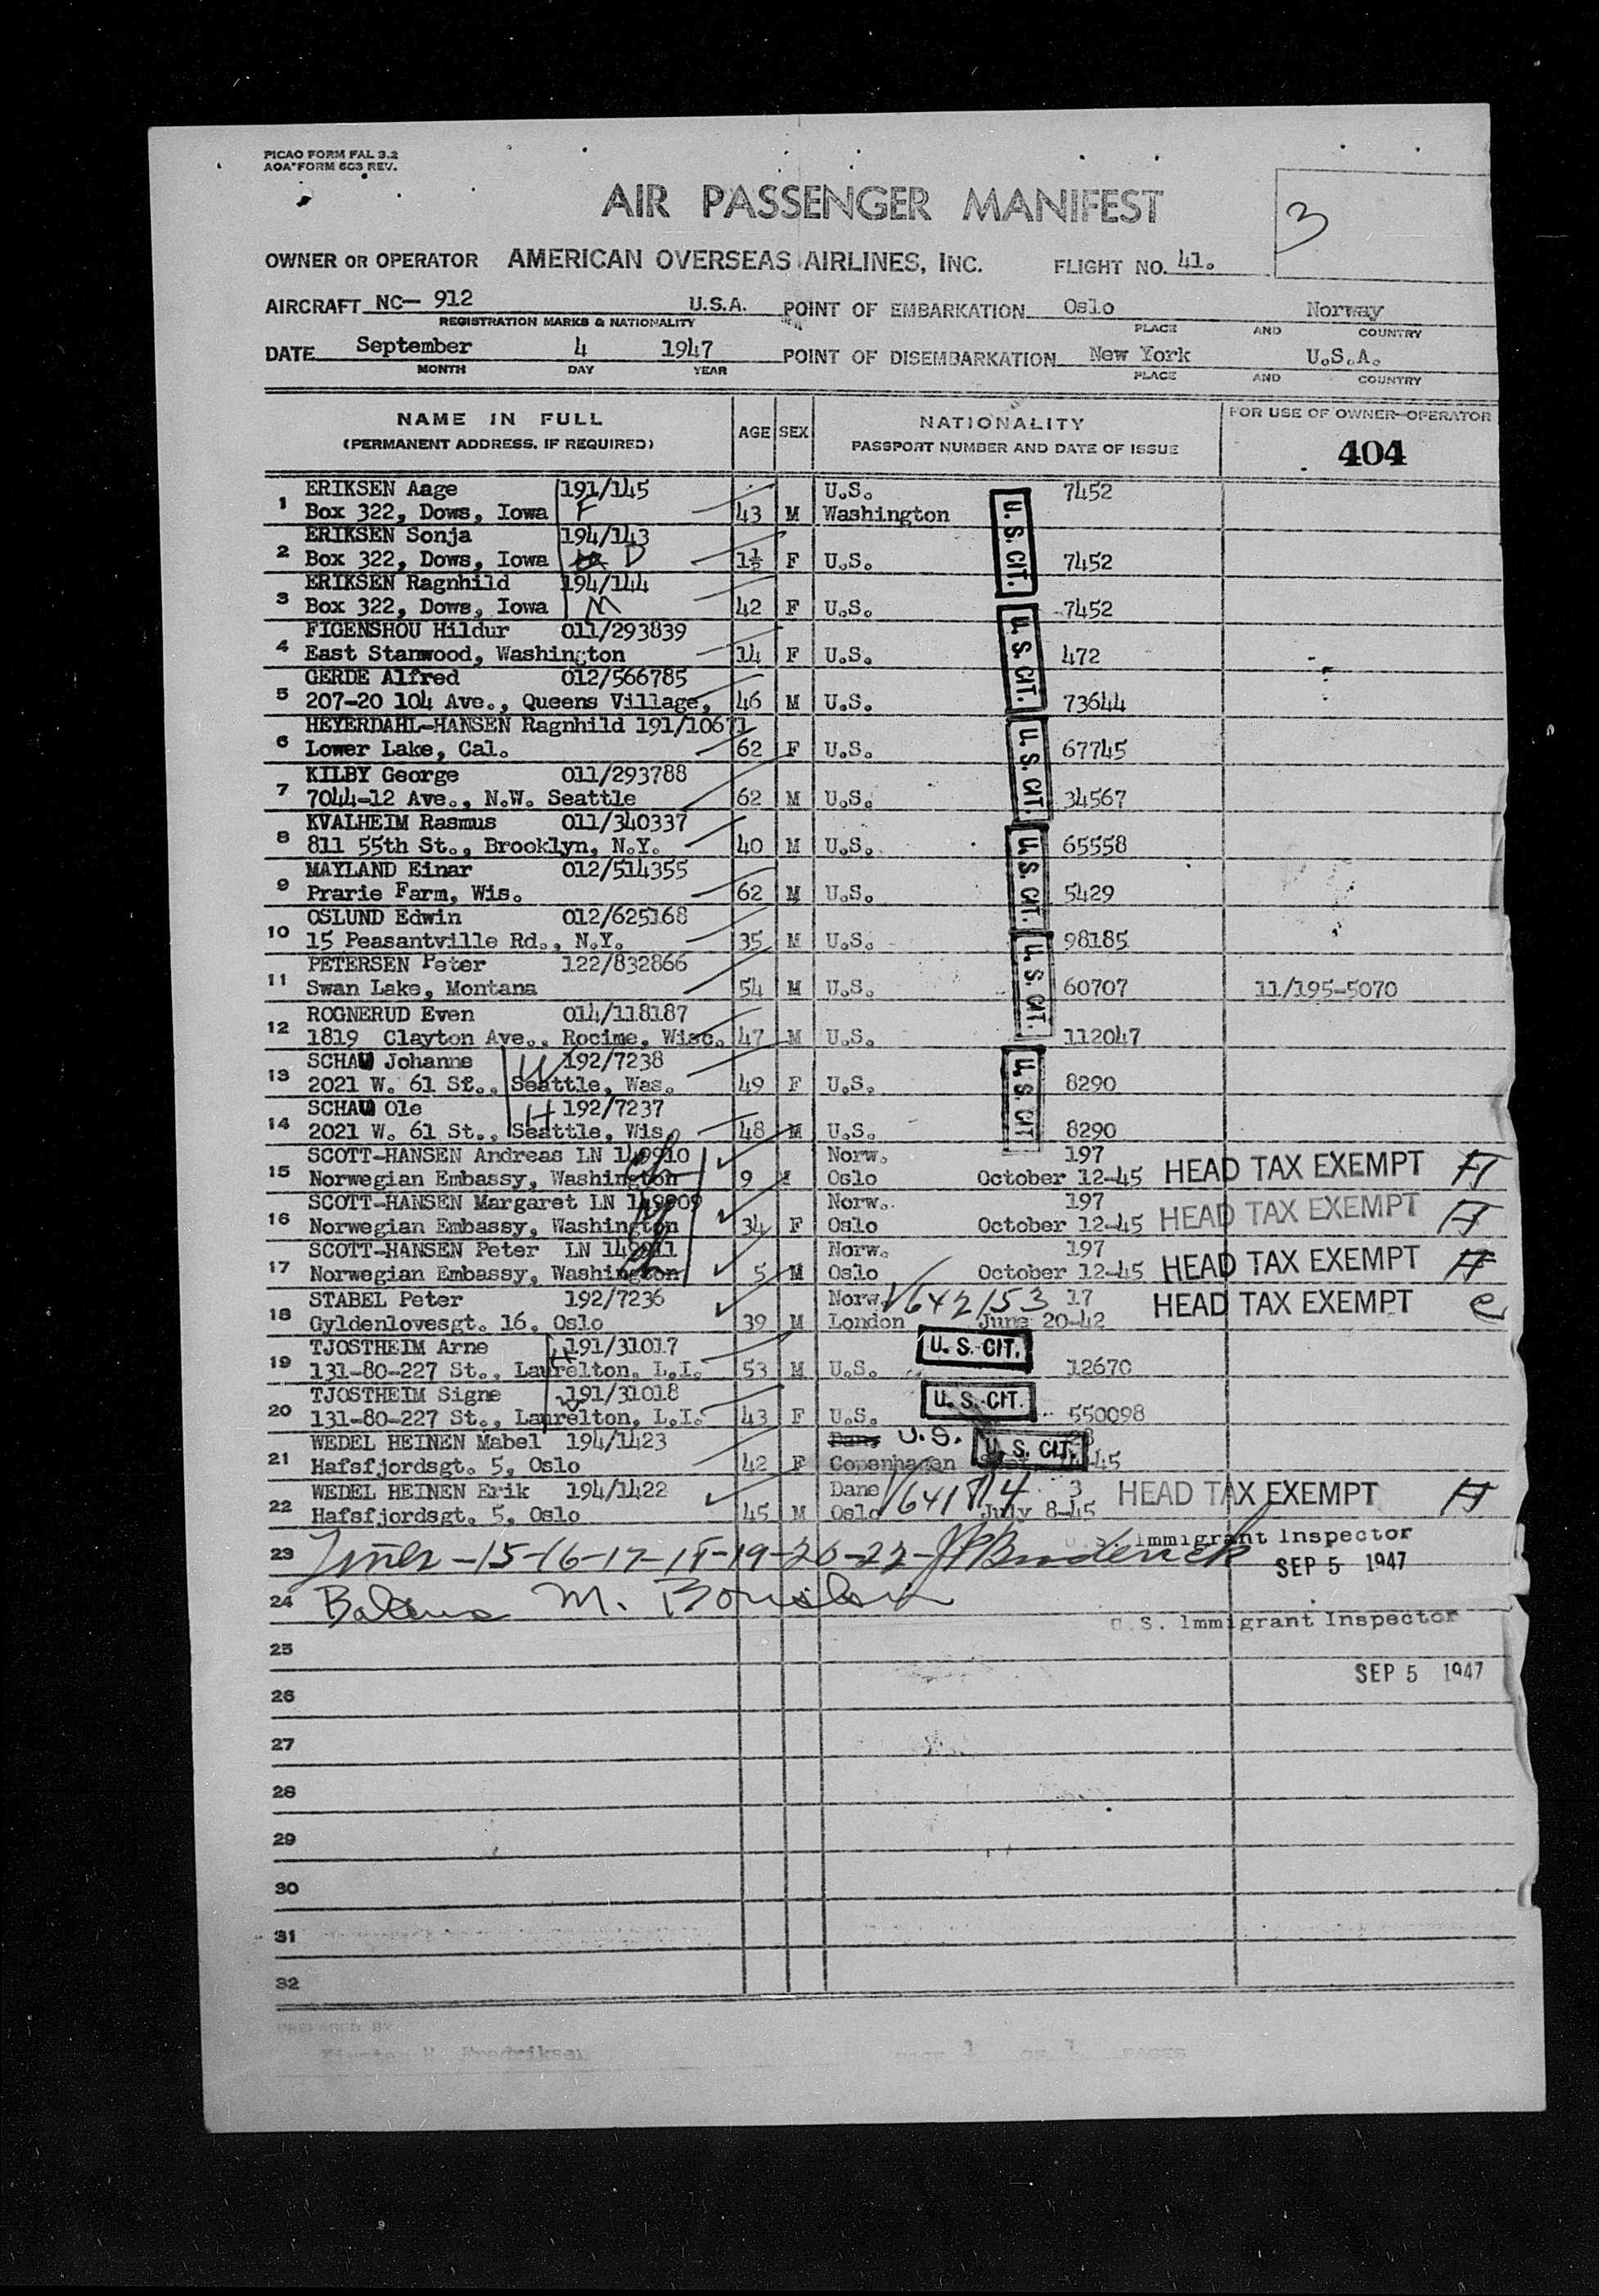 PICAO FORM FAL 3.2
AOA FORM 603 REV.
AIR PASSENGER MANIFEST
3
OWNER OR OPERATOR AMERICAN OVERSEAS AIRLINES, INC. FLIGHT NO. 41.
AIRCRAFT NC— 912 U.S.A. POINT OF EMBARKATION Oslo Norway
REGISTRATION MARKS & NATIONALITY PLACE AND COUNTRY
DATE September 4 1947 POINT OF DISEMBARKATION New York U.S.A.
MONTH DAY YEAR PLACE AND COUNTRY
NAME IN FULL AGE SEX NATIONALITY FOR USE OF OWNER-OPERATOR
(PERMANENT ADDRESS, IF REQUIRED) PASSPORT NUMBER AND DATE OF ISSUE 404
ERIKSEN Aage 191/145 U.S. 7452
1 Box 322, Dows, Iowa F 43 M Washington U.S. CIT.
ERIKSEN Sonja 194/143
2 Box 322, Dows, Iowa D 1½ F U.S. 7452
ERIKSEN Ragnhild 194/144
3 Box 322, Dows, Iowa M 42 F U.S. 7452
FIGENSHOU Hildur 011/293839
4 East Stanwood, Washington 14 F U.S. U.S. CIT. 472
GERDE Alfred 012/566785
5 207-20 104 Ave., Queens Village, 46 M U.S. 73644
HEYERDAHL-HANSEN Ragnhild 191/10671
6 Lower Lake, Cal. 62 F U.S. U.S. CIT. 67745
KILBY George 011/293788
7 7044-12 Ave., N.W. Seattle 62 M U.S. 34567
KVALHEIM Rasmus 011/340337
8 811 55th St., Brooklyn, N.Y. 40 M U.S. U.S. CIT. 65558
MAYLAND Einar 012/514355
9 Prarie Farm, Wis. 62 M U.S. 5429
OSLUND Edwin 012/625168
10 15 Peasantville Rd., N.Y. 35 M U.S. U.S. CIT. 98185
PETERSEN Peter 122/832866
11 Swan Lake, Montana 54 M U.S. 60707 11/195-5070
ROGNERUD Even 014/118187
12 1819 Clayton Ave., Rocime, Wisc. 47 M U.S. 112047
SCHAU Johanne W 192/7238
13 2021 W. 61 St., Seattle, Was. 49 F U.S. U.S. CIT 8290
SCHAU Ole H 192/7237
14 2021 W. 61 St., Seattle, Wis. 48 M U.S. 8290
SCOTT-HANSEN Andreas LN 149910 Norw. 197
15 Norwegian Embassy, Washington 9 M Oslo October 12-45 HEAD TAX EXEMPT
SCOTT-HANSEN Margaret LN 149909 Norw. 197
16 Norwegian Embassy, Washington 34 F Oslo October 12-45 HEAD TAX EXEMPT
SCOTT-HANSEN Peter LN 149911 Norw. 197
17 Norwegian Embassy, Washington 5 M Oslo October 12-45 HEAD TAX EXEMPT
STABEL Peter 192/7236 Norw. V642153 17
18 Gyldenlovesgt. 16, Oslo 39 M London June 20-42 HEAD TAX EXEMPT
TJOSTHEIM Arne 191/31017 U.S. CIT.
19 131-80-227 St., Laurelton, L.I. 53 M U.S. 12670
TJOSTHEIM Signe 191/31018 U.S. CIT.
20 131-80-227 St., Laurelton, L.I. 43 F U.S. 550098
WEDEL HEINEN Mabel 194/1423 Dane U.S. U.S. CIT.
21 Hafsfjordsgt. 5, Oslo 42 F Copenhagen 45
WEDEL HEINEN Erik 194/1422 Dane 3 HEAD TAX EXEMPT
22 Hafsfjordsgt. 5, Oslo 45 M Oslo July 8-45
U.S. Immigrant Inspector
23 Lines -15-16-17-18-19-20-22- JP Broderick SEP 5 1947
24 Balance M.
U.S. Immigrant Inspector
25
SEP 5 1947
26
27
28
29
30
31
32
PREPARED BY
Kirsten H. Fredriksen PAGE 1 OF 1 PAGES